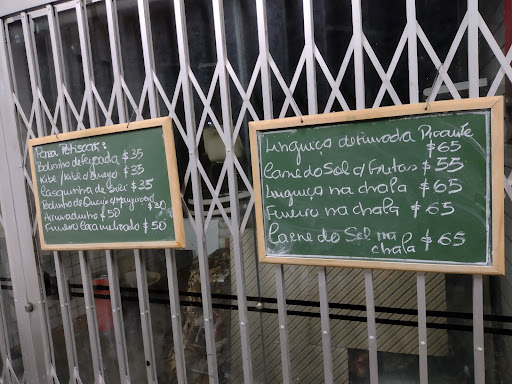 Para Petiscar:
Bolinho de Feijoada $35
Kibe / Kibe c/ Queijo $35
Casquinha de Siri $35
Bolinho de Queijo c/
$30
Arrumadinho $50
Fumeiro Caramelizado $50
Linguiça defumada Picante
$65
Carne do Sol c/ Frutas $55
Linguiça na chapa $65
Fumeiro na chapa $65
Carne do Sol na
chapa $65